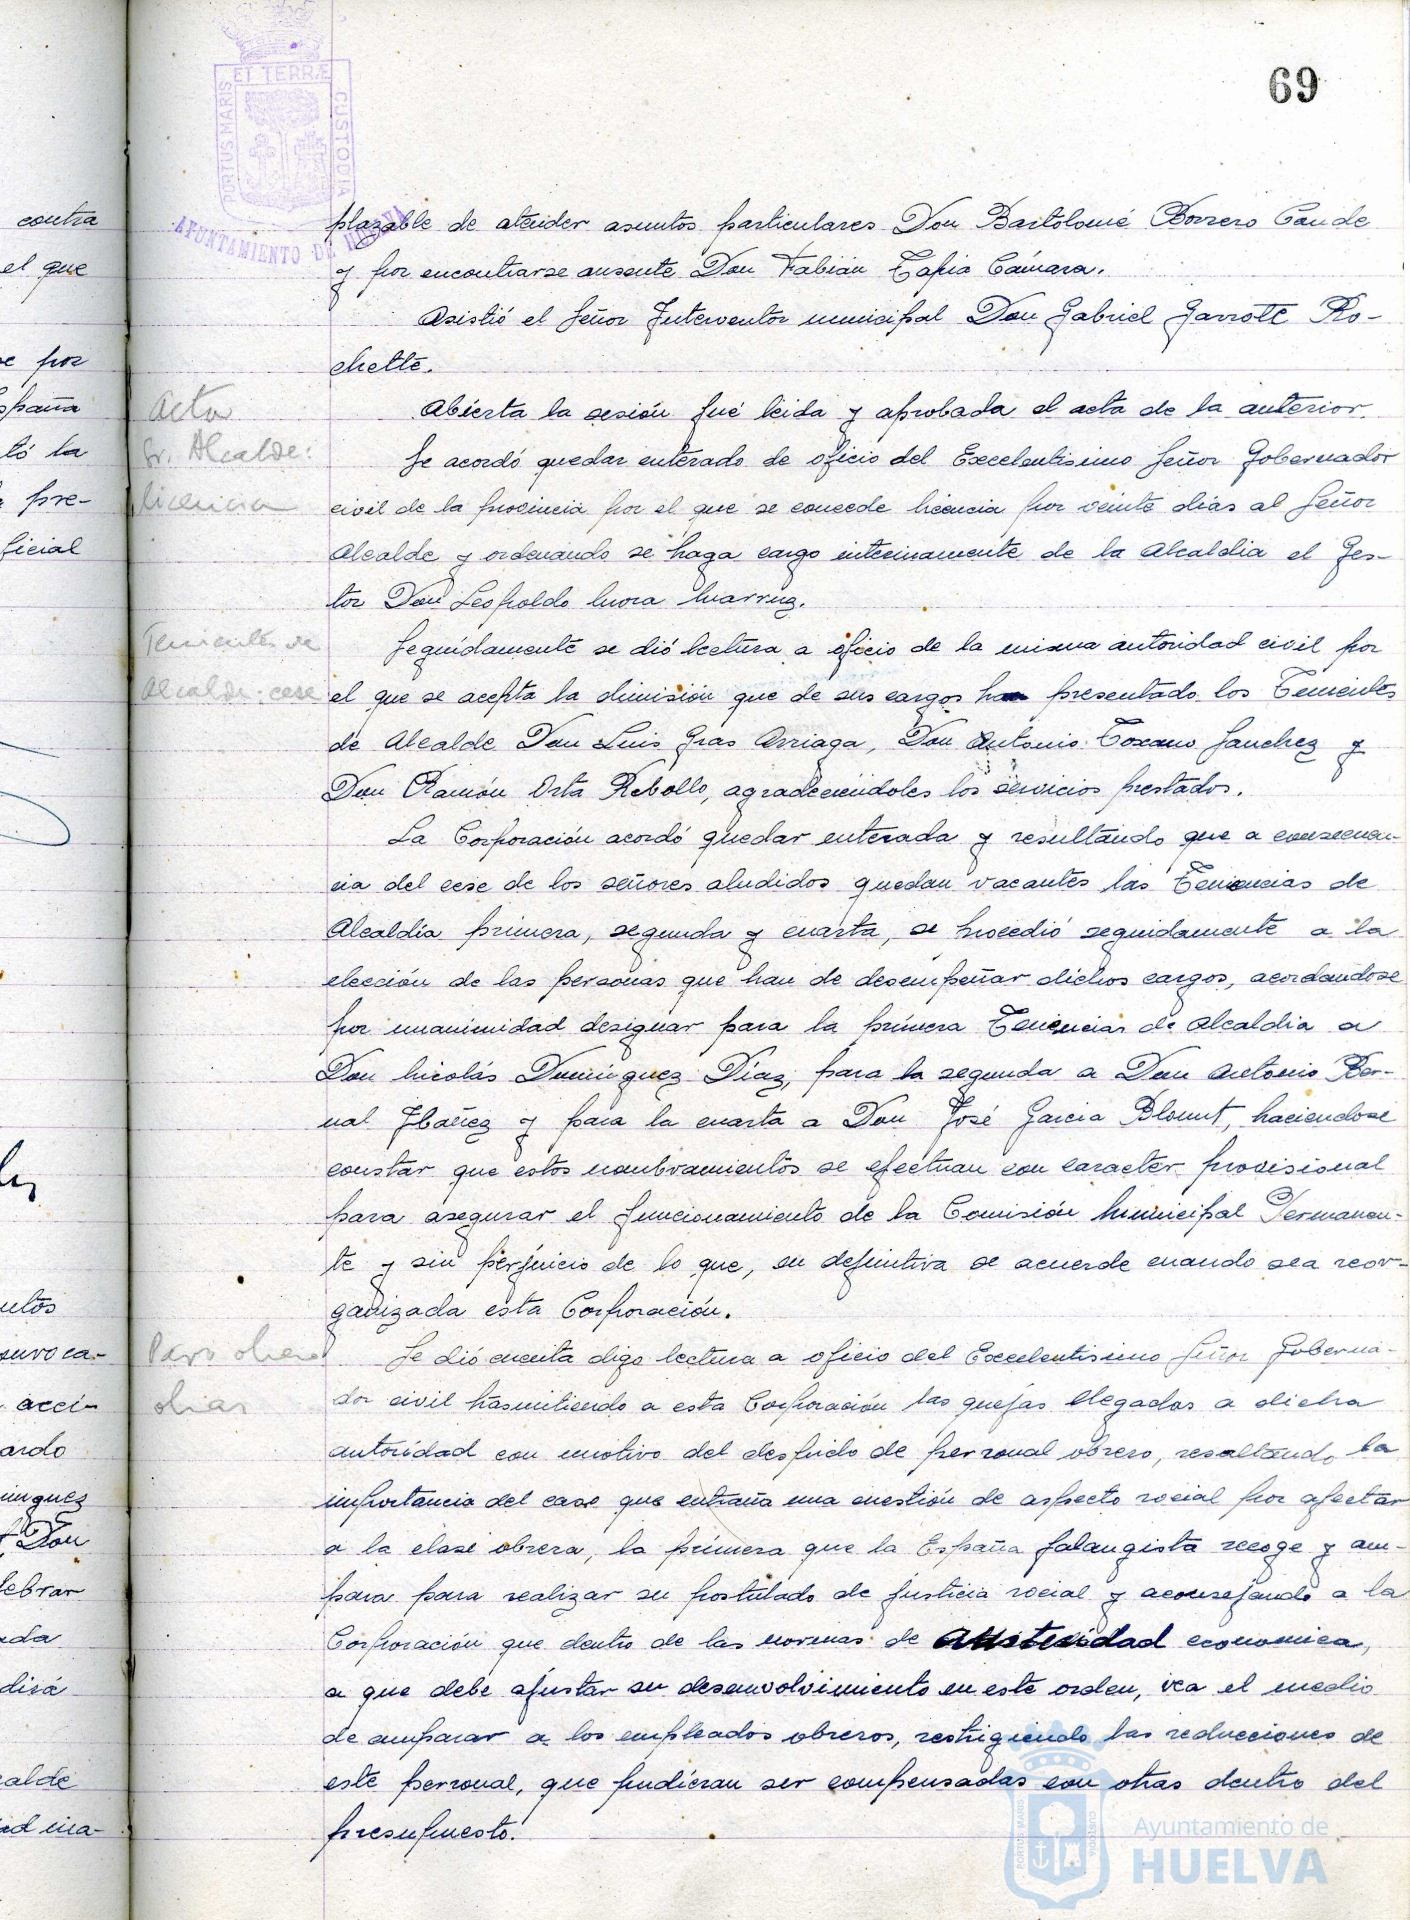 69
ET TERRÆ
PORTUS MARIS
CUSTODIA
AYUNTAMIENTO DE HUELVA
contra
el que
por
España
la
pre-
ficial
Don
lebrar
ada
dirá
calde
plazable de atender asuntos particulares Don Bartolomé Borrero Conde
y por encontrarse ausente Don Fabián Tapia Cámara.
Asistió el Señor Interventor municipal Don Gabriel Garrote Ro-
chette.
Acta
Abierta la sesión fué leida y aprobada el acta de la anterior.
Sr. Alcalde:
licencia
Se acordó quedar enterado de oficio del Excelentisimo Señor Gobernador
civil de la provincia por el que se concede licencia por veinte dias al Señor
Alcalde y ordenando se haga cargo interinamente de la Alcaldia el Ges-
tor Don Leopoldo Mora Marruz.
Tenientes de
Alcalde: cese
Seguidamente se dió lectura a oficio de la misma autoridad civil por
el que se acepta la dimisión que de sus cargos han presentado los Tenientes
de Alcalde Don Luis Gras Arriaga, Don Antonio Toscano Sanchez y
Don Ramón Orta Rebollo, agradeciéndoles los servicios prestados.
La Corporación acordó quedar enterada y resultando que a consecuen-
cia del cese de los señores aludidos quedan vacantes las Tenencias de
Alcaldía primera, segunda y cuarta, se procedió seguidamente a la
elección de las personas que han de desempeñar dichos cargos, acordandose
por unanimidad designar para la primera Tenencias de Alcaldia a
Don Nicolás Dominguez Díaz, para la segunda a Don Antonio Ber-
nal Ibañez y para la cuarta a Don José Garcia Blount, haciendose
constar que estos nombramientos se efectuan con caracter provisional
para asegurar el funcionamiento de la Comisión Municipal Permanen-
te y sin perjuicio de lo que, en definitiva se acuerde cuando sea reor-
ganizada esta Corporación.
Paro obrero
obras
Se dió cuenta digo lectura a oficio del Excelentisimo Señor Goberna-
dor civil trasmitiendo a esta Corporación las quejas llegadas a dicha
autoridad con motivo del despido de personal obrero, resaltando la
importancia del caso que entraña una cuestión de aspecto social por afectar
a la clase obrera, la primera que la España falangista recoge y am-
para para realizar su postulado de justicia social y aconsejando a la
Corporación que dentro de las normas de austeridad economica,
a que debe ajustar su desenvolvimiento en este orden, vea el medio
de amparar a los empleados obreros, restrigiendo las reducciones de
este personal, que pudieran ser compensadas con otras dentro del
presupuesto.
PORTUS MARIS
CUSTODIA
Ayuntamiento de
HUELVA